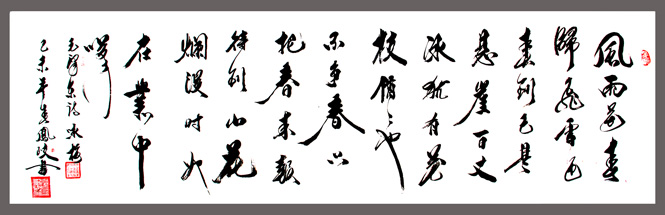 風雨送春
歸飛雪迎
春到已是
懸崖百丈
冰猶有花
枝俏〻也
不争春只
把春来報
待到山花
爛漫时她
在叢中
笑
毛泽东詩咏梅
鳳書